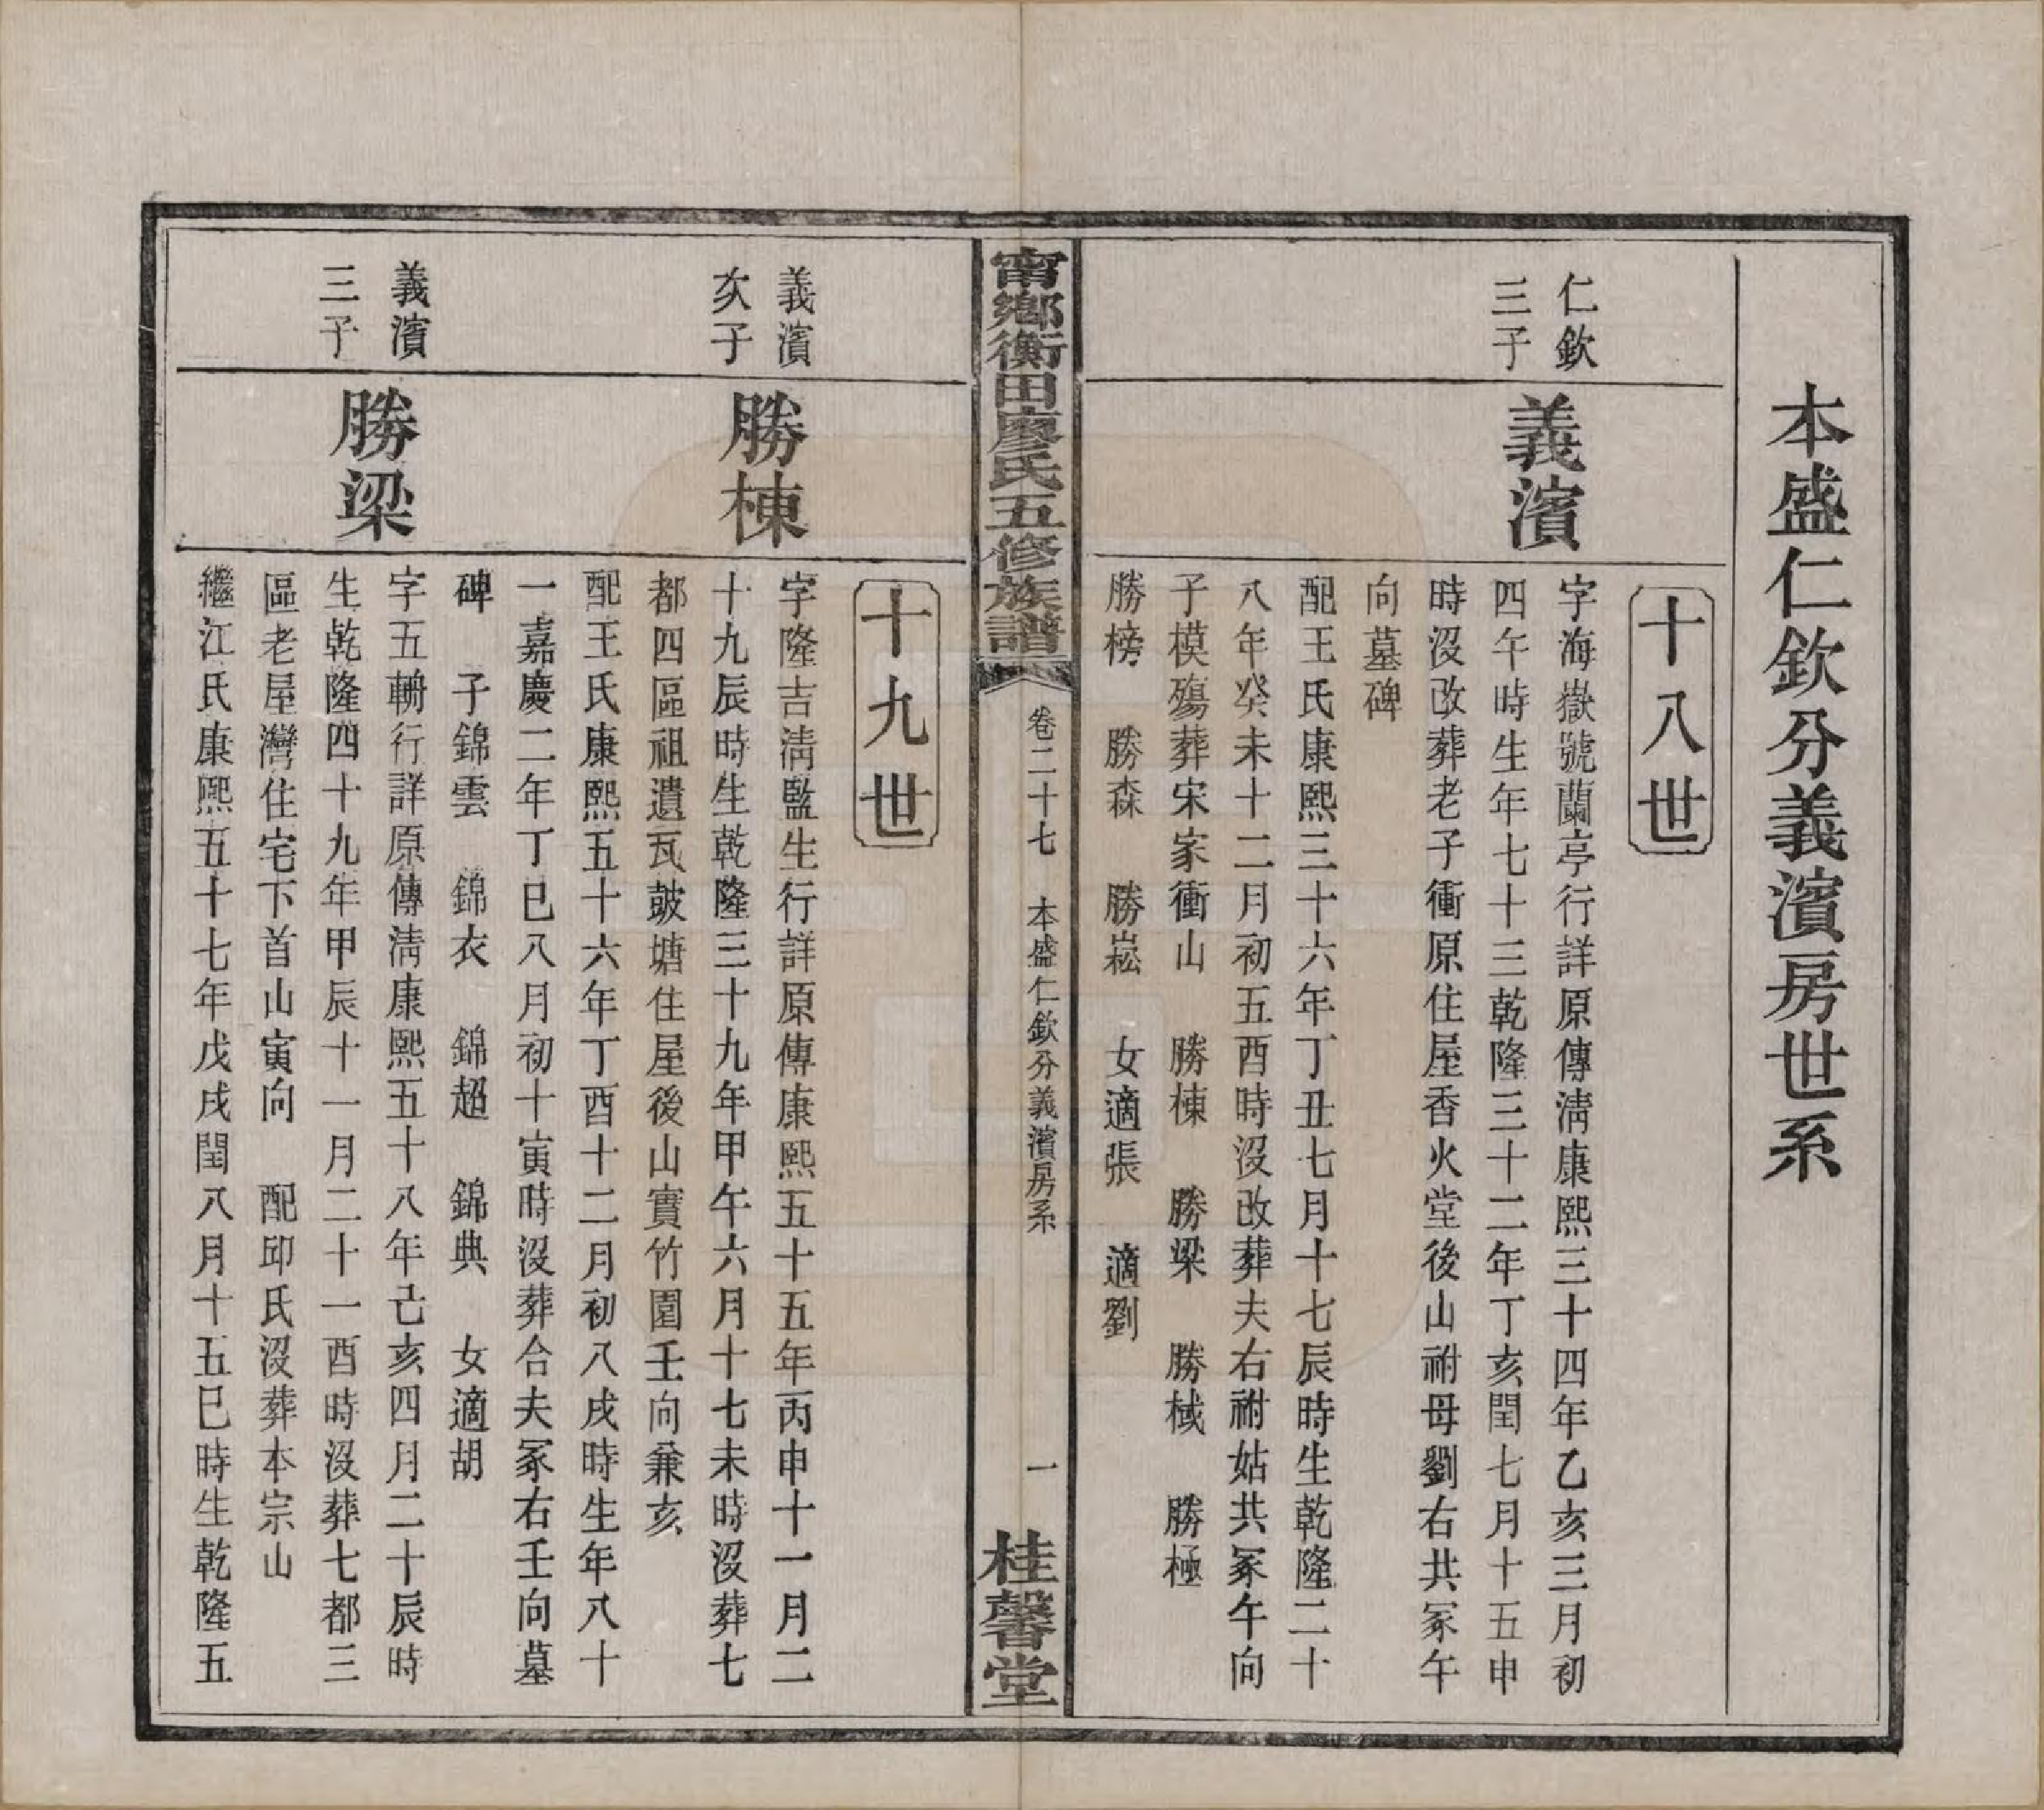 本盛仁欽分義濱房世系
十八世
仁欽
三子
義濱
字海嶽號蘭亭行詳原傳淸康熙三十四年乙亥三月初
四午時生年七十三乾隆三十二年丁亥閏七月十五申
時沒改葬老子衝原住屋香火堂後山祔母劉右共冢午
向墓碑
配王氏康熙三十六年丁丑七月十七辰時生乾隆二十
八年癸未十二月初五酉時沒改葬夫右祔姑共冢午向
子模殤葬宋家衝山　勝棟　勝梁　勝棫　勝極
勝榜　勝森　勝崧　女適張　適劉
甯鄉衡田廖氏五修族譜
卷二十七　本盛仁欽分義濱房系
一
桂馨堂
十九世
義濱
次子
勝棟
字隆吉淸監生行詳原傳康熙五十五年丙申十一月二
十九辰時生乾隆三十九年甲午六月十七未時沒葬七
都四區祖遺瓦皷塘住屋後山實竹園壬向兼亥
配王氏康熙五十六年丁酉十二月初八戌時生年八十
一嘉慶二年丁巳八月初十寅時沒葬合夫冢右壬向墓
碑　子錦雲　錦衣　錦超　錦典　女適胡
義濱
三子
勝梁
字五輈行詳原傳淸康熙五十八年己亥四月二十辰時
生乾隆四十九年甲辰十一月二十一酉時沒葬七都三
區老屋灣住宅下首山寅向　配邱氏沒葬本宗山
繼江氏康熙五十七年戊戌閏八月十五巳時生乾隆五